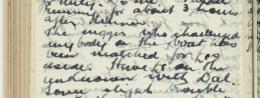 to duty. 
running for about 3 hours
after dinner.
The nigger who challenged
anybody on the boat has
been matched for £50
aside. Have to an
unknown with Dal.
Some slight trouble